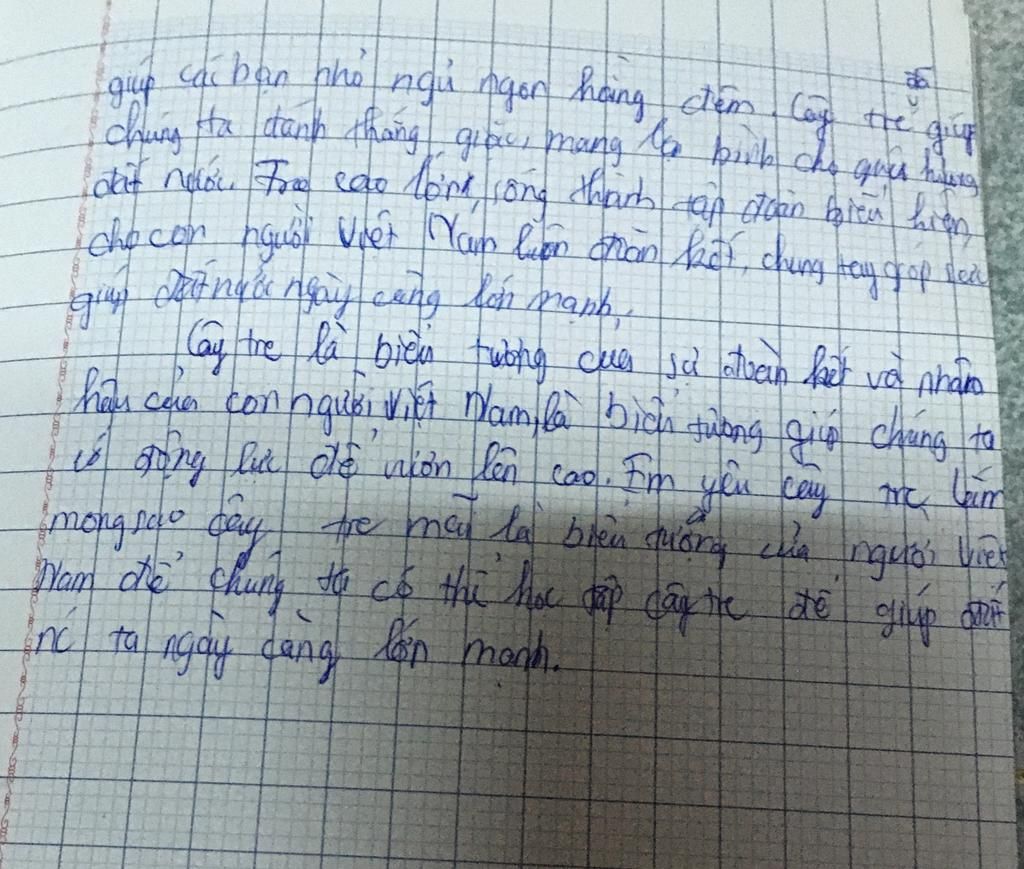 giúp các bạn nhỏ ngủ ngon hằng đêm. Cây tre đã giúp
chúng ta đánh thắng giặc, mang lại bình cho quê hương
đất nước. Tre cao lớn, sống thành tập đoàn biểu hiện
cho con người Việt Nam luôn đoàn kết, chung tay góp sức
giúp đất nước ngày càng lớn mạnh,
Cây tre là biểu tượng của sự đoàn kết và nhân
hậu của con người Việt Nam, là biểu tượng giúp chúng ta
có động lực để vươn lên cao. Em yêu cây tre lắm
mong sao cây tre mãi là biểu tượng của người Việt
Nam để chúng ta có thể học tập cây tre để giúp đất
nc ta ngày càng lớn mạnh.